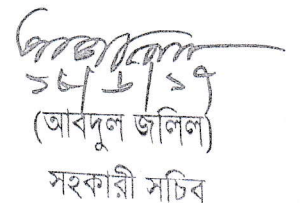 ১৮|৬|১৭
(আবদুল জলিল)
সহকারী সচিব